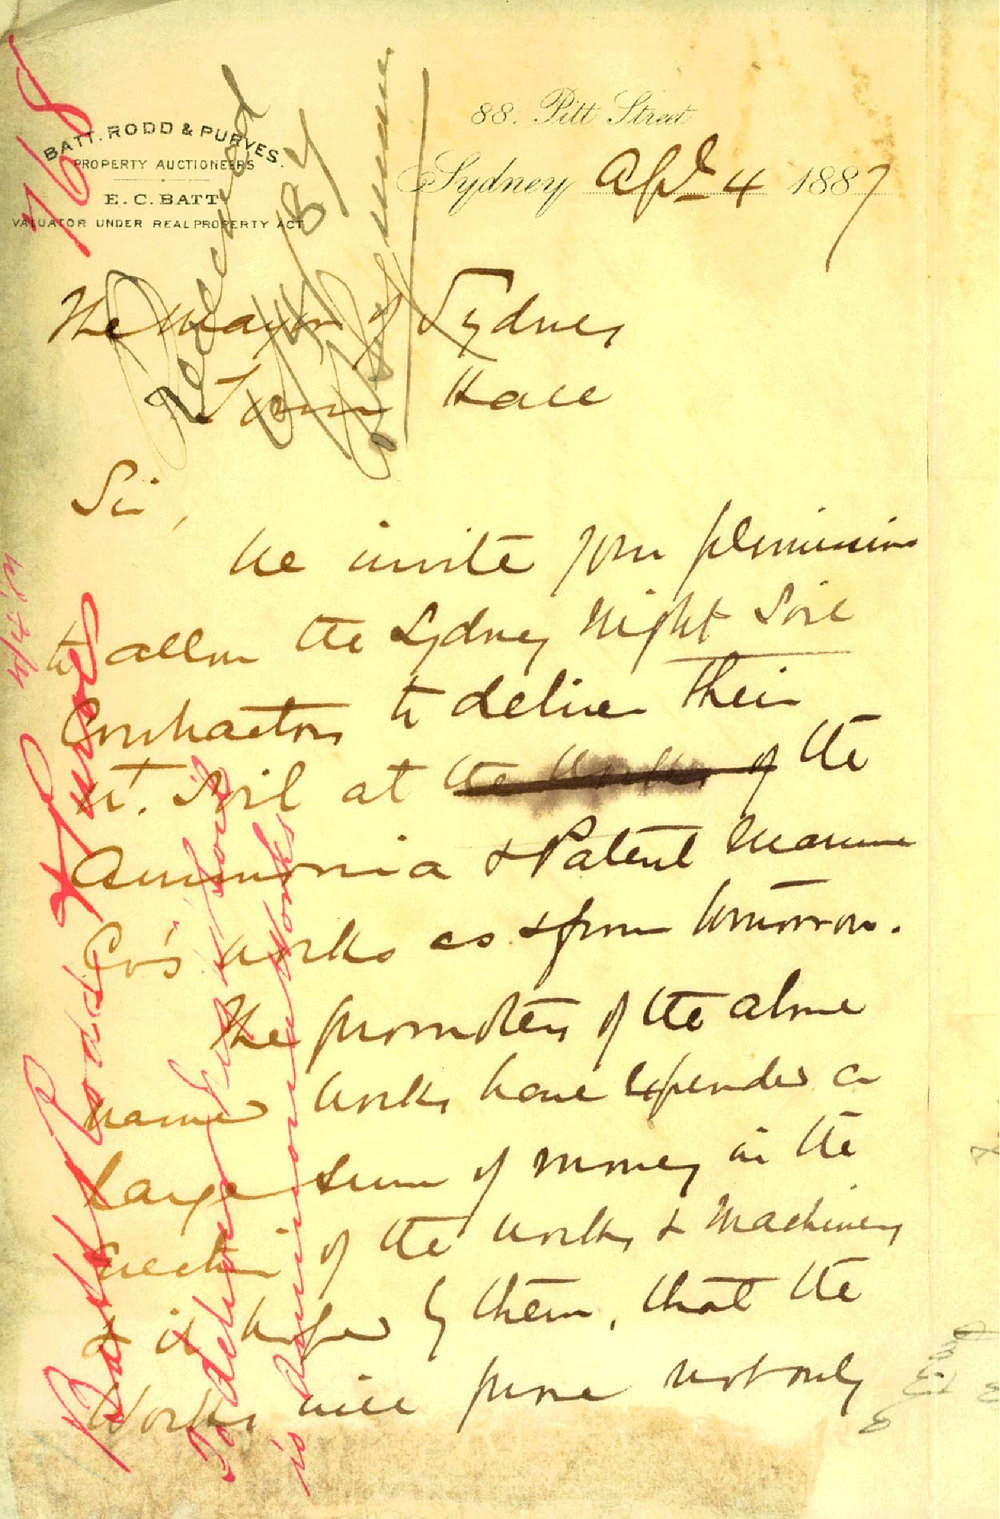 768
BATT. RODD & PURVES.
PROPERTY AUCTIONEERS
E. C. BATT
VALUATOR UNDER REAL PROPERTY ACT
88. Pitt Street
Sydney Apl 4 1887
Received
The Mayor of Sydney
Town Hall
Sir,
We invite your permission
to allow the Sydney Night Soil
Contractors to deliver their
Nt. Soil at the works of the
Ammonia & Patent Manure
Co's works as & from tomorrow.
The promoters of the above
named works have expended a
large sum of money in the
erection of the works & Machinery
& it hoped by them, that the
Works will prove not only
Batt Rodd & Purves
To deliver Night Soil
is Ammonia Works